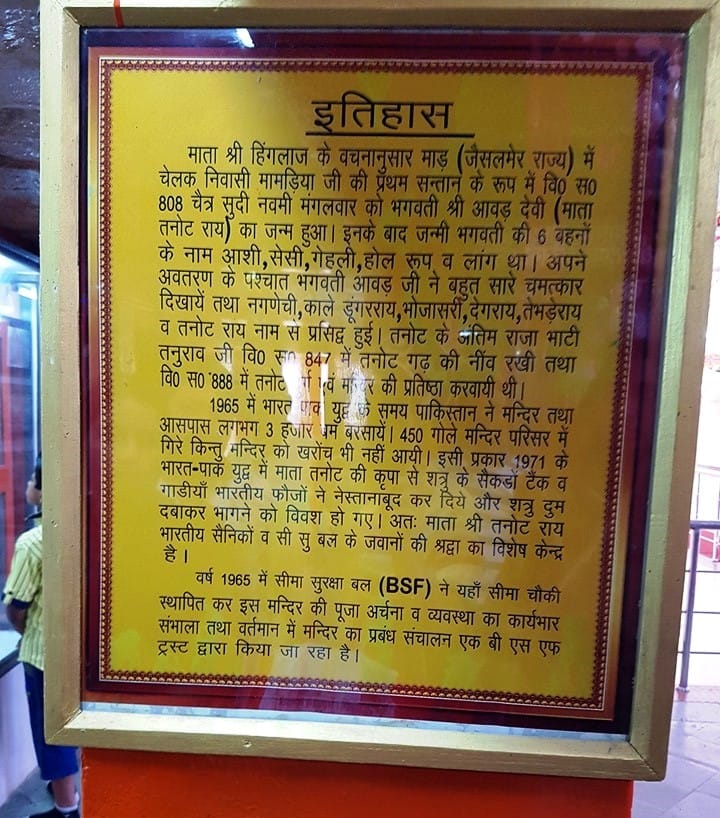 इतिहास
माता श्री हिंगलाज के वचनानुसार माड़ (जैसलमेर राज्य) में
चेलक निवासी मामड़िया जी की प्रथम सन्तान के रूप में वि0 स0
808 चैत्र सुदी नवमी मंगलवार को भगवती श्री आवड़ देवी (माता
तनोट राय) का जन्म हुआ। इनके बाद जन्मी भगवती की 6 बहनों
के नाम आशी,सेसी,गेहली,होल रूप व लांग था। अपने
अवतरण के पश्चात भगवती आवड़ जी ने बहुत सारे चमत्कार
दिखायें तथा नगणेची,काले डूंगरराय,भोजासरी,देगराय,तेभड़ेराय
व तनोट राय नाम से प्रसिद्व हुई। तनोट के अंतिम राजा भाटी
तनुराव जी वि0 स0 847 में तनोट गढ़ की नींव रखी तथा
वि0 स0 888 में तनोट एवं मन्दिर की प्रतिष्ठा करवायी थी।
1965 में भारत पाक युद्व के समय पाकिस्तान ने मन्दिर तथा
आसपास लगभग 3 हजार बम बरसायें। 450 गोले मन्दिर परिसर में
गिरे किन्तु मन्दिर को खरोंच भी नहीं आयी। इसी प्रकार 1971 के
भारत-पाक युद्व में माता तनोट की कृपा से शत्रु के सैकडों टैंक व
गाडीयाँ भारतीय फौजों ने नेस्तानाबूद कर दिये और शत्रु दुम
दबाकर भागने को विवश हो गए। अतः माता श्री तनोट राय
भारतीय सैनिकों व सी सु बल के जवानों की श्रद्वा का विशेष केन्द्र
है।
वर्ष 1965 में सीमा सुरक्षा बल (BSF) ने यहाँ सीमा चौकी
स्थापित कर इस मन्दिर की पूजा अर्चना व व्यवस्था का कार्यभार
संभाला तथा वर्तमान में मन्दिर का प्रबंध संचालन एक बी एस एफ
ट्रस्ट द्वारा किया जा रहा है।